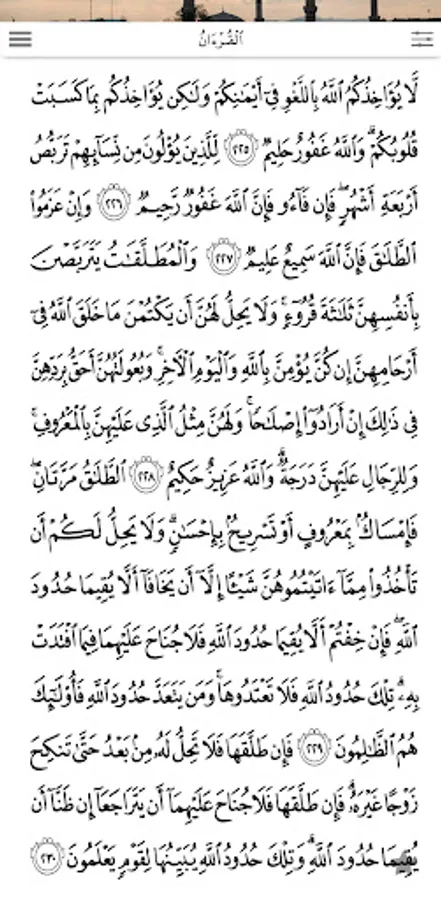 ٱلْقُرْءَانُ
لَّا يُؤَاخِذُكُمُ ٱللَّهُ بِٱللَّغْوِ فِىٓ أَيْمَـٰنِكُمْ وَلَـٰكِن يُؤَاخِذُكُم بِمَا كَسَبَتْ
قُلُوبُكُمْ ۗ وَٱللَّهُ غَفُورٌ حَلِيمٌ ٢٢٥ لِّلَّذِينَ يُؤْلُونَ مِن نِّسَآئِهِمْ تَرَبُّصُ
أَرْبَعَةِ أَشْهُرٍ ۖ فَإِن فَآءُو فَإِنَّ ٱللَّهَ غَفُورٌ رَّحِيمٌ ٢٢٦ وَإِنْ عَزَمُوا۟
ٱلطَّلَـٰقَ فَإِنَّ ٱللَّهَ سَمِيعٌ عَلِيمٌ ٢٢٧ وَٱلْمُطَلَّقَـٰتُ يَتَرَبَّصْنَ
بِأَنفُسِهِنَّ ثَلَـٰثَةَ قُرُوٓءٍ ۚ وَلَا يَحِلُّ لَهُنَّ أَن يَكْتُمْنَ مَا خَلَقَ ٱللَّهُ فِىٓ
أَرْحَامِهِنَّ إِن كُنَّ يُؤْمِنَّ بِٱللَّهِ وَٱلْيَوْمِ ٱلْـَٔاخِرِ ۚ وَبُعُولَتُهُنَّ أَحَقُّ بِرَدِّهِنَّ
فِى ذَٰلِكَ إِنْ أَرَادُوٓا۟ إِصْلَـٰحًا ۚ وَلَهُنَّ مِثْلُ ٱلَّذِى عَلَيْهِنَّ بِٱلْمَعْرُوفِ ۚ
وَلِلرِّجَالِ عَلَيْهِنَّ دَرَجَةٌ ۗ وَٱللَّهُ عَزِيزٌ حَكِيمٌ ٢٢٨ ٱلطَّلَـٰقُ مَرَّتَانِ ۖ
فَإِمْسَاكٌۢ بِمَعْرُوفٍ أَوْ تَسْرِيحٌۢ بِإِحْسَـٰنٍ ۗ وَلَا يَحِلُّ لَكُمْ أَن
تَأْخُذُوا۟ مِمَّآ ءَاتَيْتُمُوهُنَّ شَيْـًٔا إِلَّآ أَن يَخَافَآ أَلَّا يُقِيمَا حُدُودَ
ٱللَّهِ ۖ فَإِنْ خِفْتُمْ أَلَّا يُقِيمَا حُدُودَ ٱللَّهِ فَلَا جُنَاحَ عَلَيْهِمَا فِيمَا ٱفْتَدَتْ
بِهِۦ ۗ تِلْكَ حُدُودُ ٱللَّهِ فَلَا تَعْتَدُوهَا ۚ وَمَن يَتَعَدَّ حُدُودَ ٱللَّهِ فَأُو۟لَـٰٓئِكَ
هُمُ ٱلظَّـٰلِمُونَ ٢٢٩ فَإِن طَلَّقَهَا فَلَا تَحِلُّ لَهُۥ مِنۢ بَعْدُ حَتَّىٰ تَنكِحَ
زَوْجًا غَيْرَهُۥ ۗ فَإِن طَلَّقَهَا فَلَا جُنَاحَ عَلَيْهِمَآ أَن يَتَرَاجَعَآ إِن ظَنَّآ أَن
يُقِيمَا حُدُودَ ٱللَّهِ ۗ وَتِلْكَ حُدُودُ ٱللَّهِ يُبَيِّنُهَا لِقَوْمٍ يَعْلَمُونَ ٢٣٠